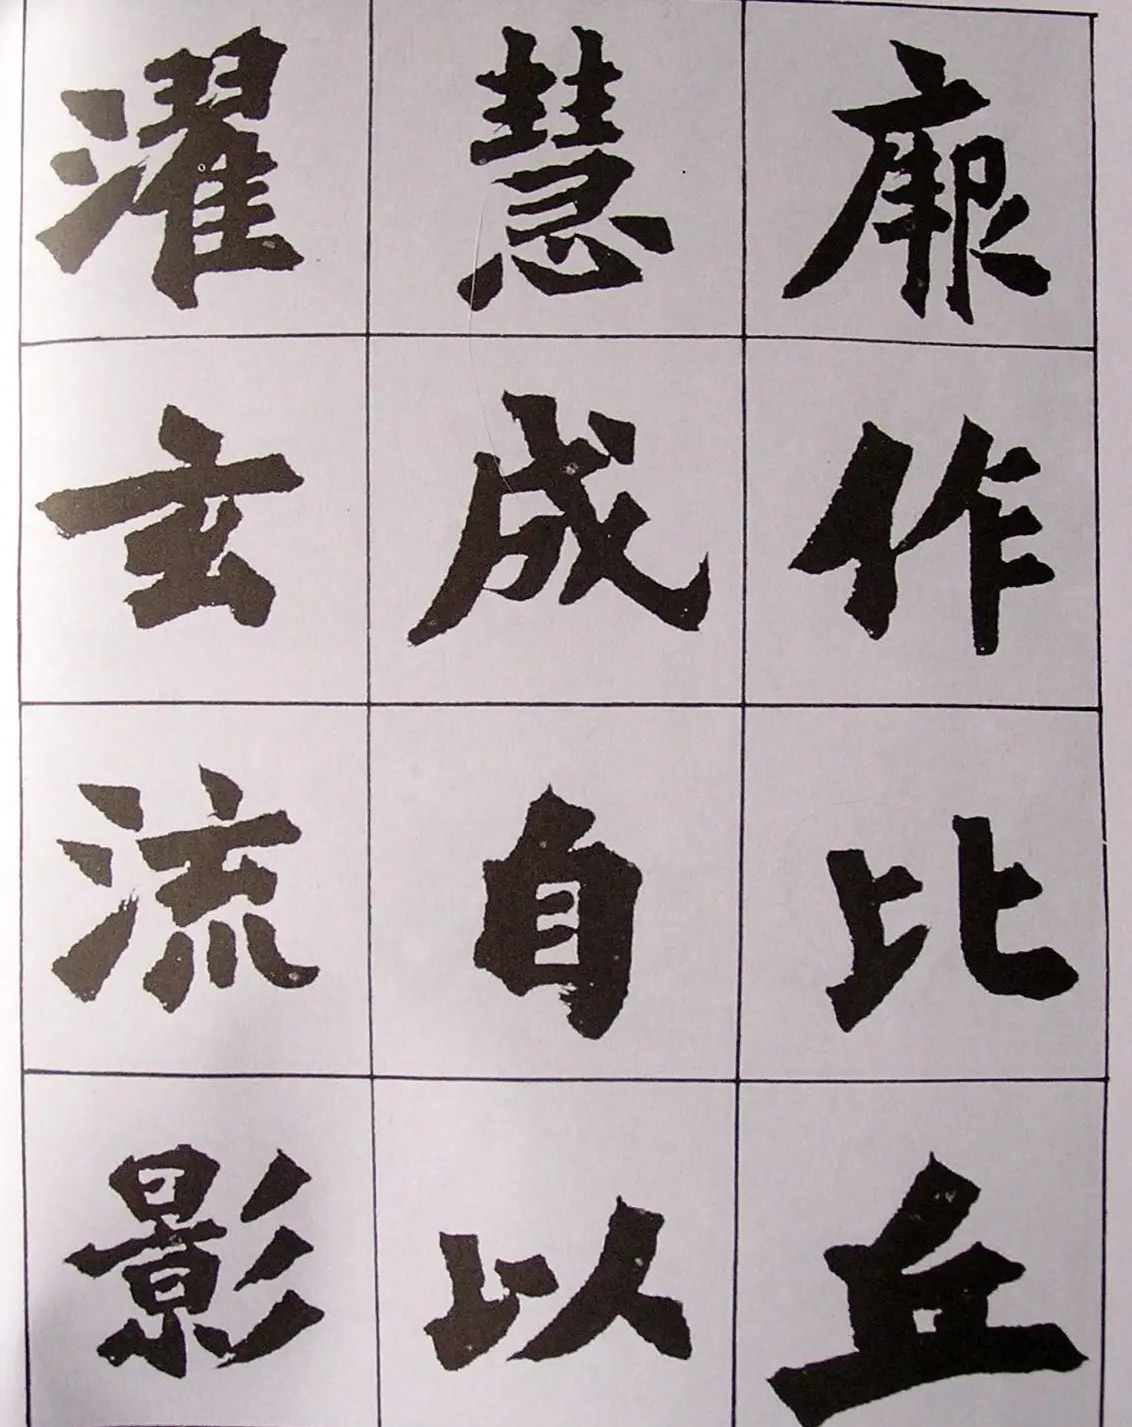 厥作比丘
慧成自以
濯玄流影